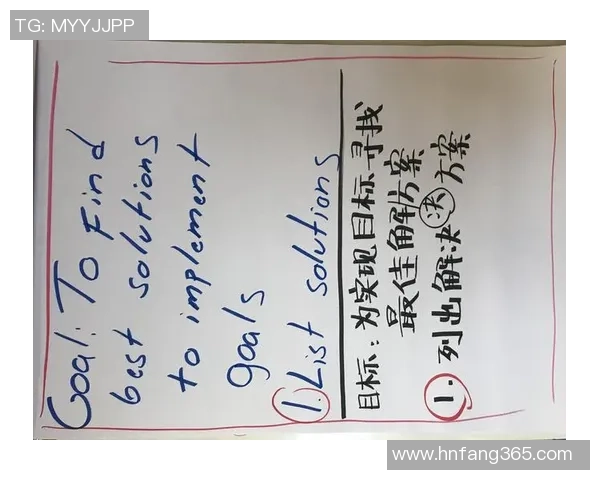 TG: MYYJJPP
Goal: To Find
best solutions
to implement
goals
1. List solutions
目标: 为实现目标寻找
最佳解方案
1. 列出解决决方案
www.hnfang365.com